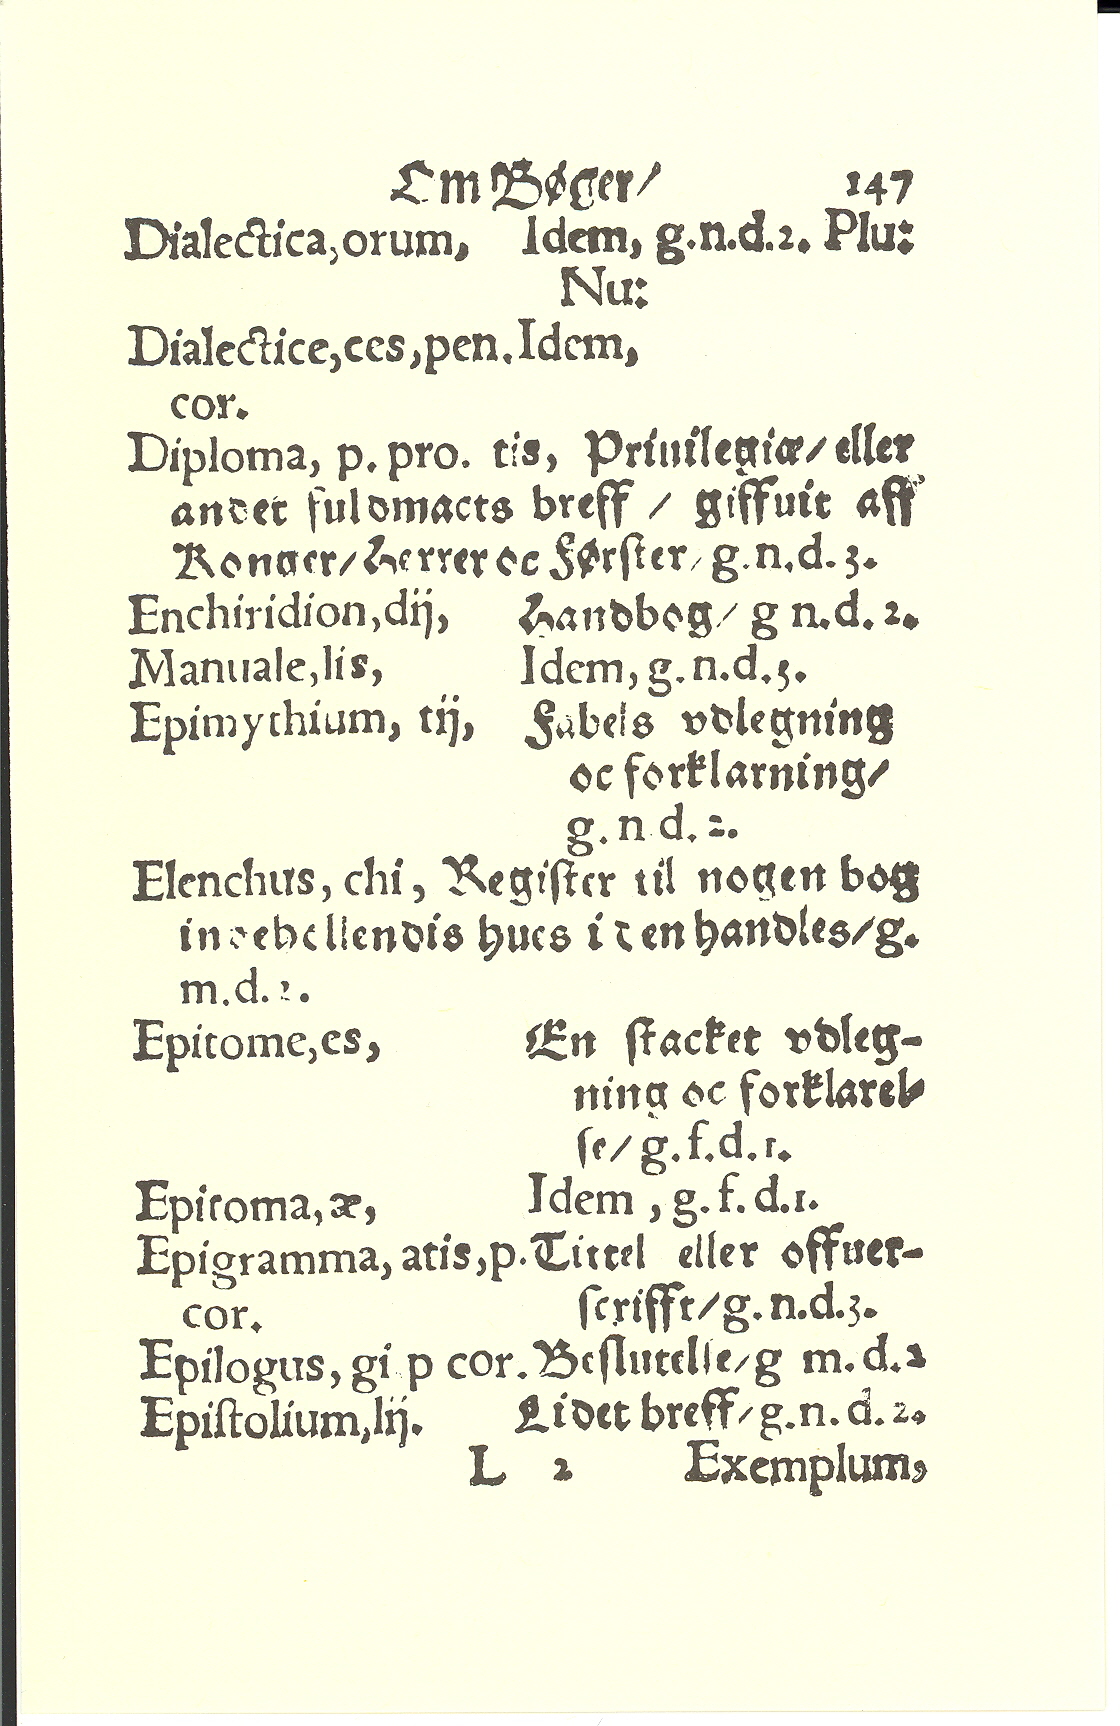 Om Bøger/ 147
Dialectica, orum, Idem, g.n.d.2. Plu:
Nu:
Dialectice, ces, pen. Idem,
cor.
Diploma, p. pro. tis, Priuilegiæ/ eller
andet fuldmacts breff / giffuit aff
Konger/ Herrer oc Førster/ g.n.d.3.
Enchiridion, dij, Handbog/ g n.d.2.
Manuale, lis, Idem, g.n.d.3.
Epimythium, tij, Fabels vdlegning
oc forklarning/
g.n d.2.
Elenchus, chi, Register til nogen bog
indehellendis hues i den handles/ g.
m.d.2.
Epitome, es, En stacket vdleg-
ning oc forklarel-
se/ g.f.d.1.
Epitoma, æ, Idem, g.f.d.1.
Epigramma, atis, p. Tittel eller offuer-
cor. scrifft/ g.n.d.3.
Epilogus, gi p cor. Beslutelse/ g m.d.2
Epistolium, lij. Lidet breff/ g.n.d.2.
L 2 Exemplum,